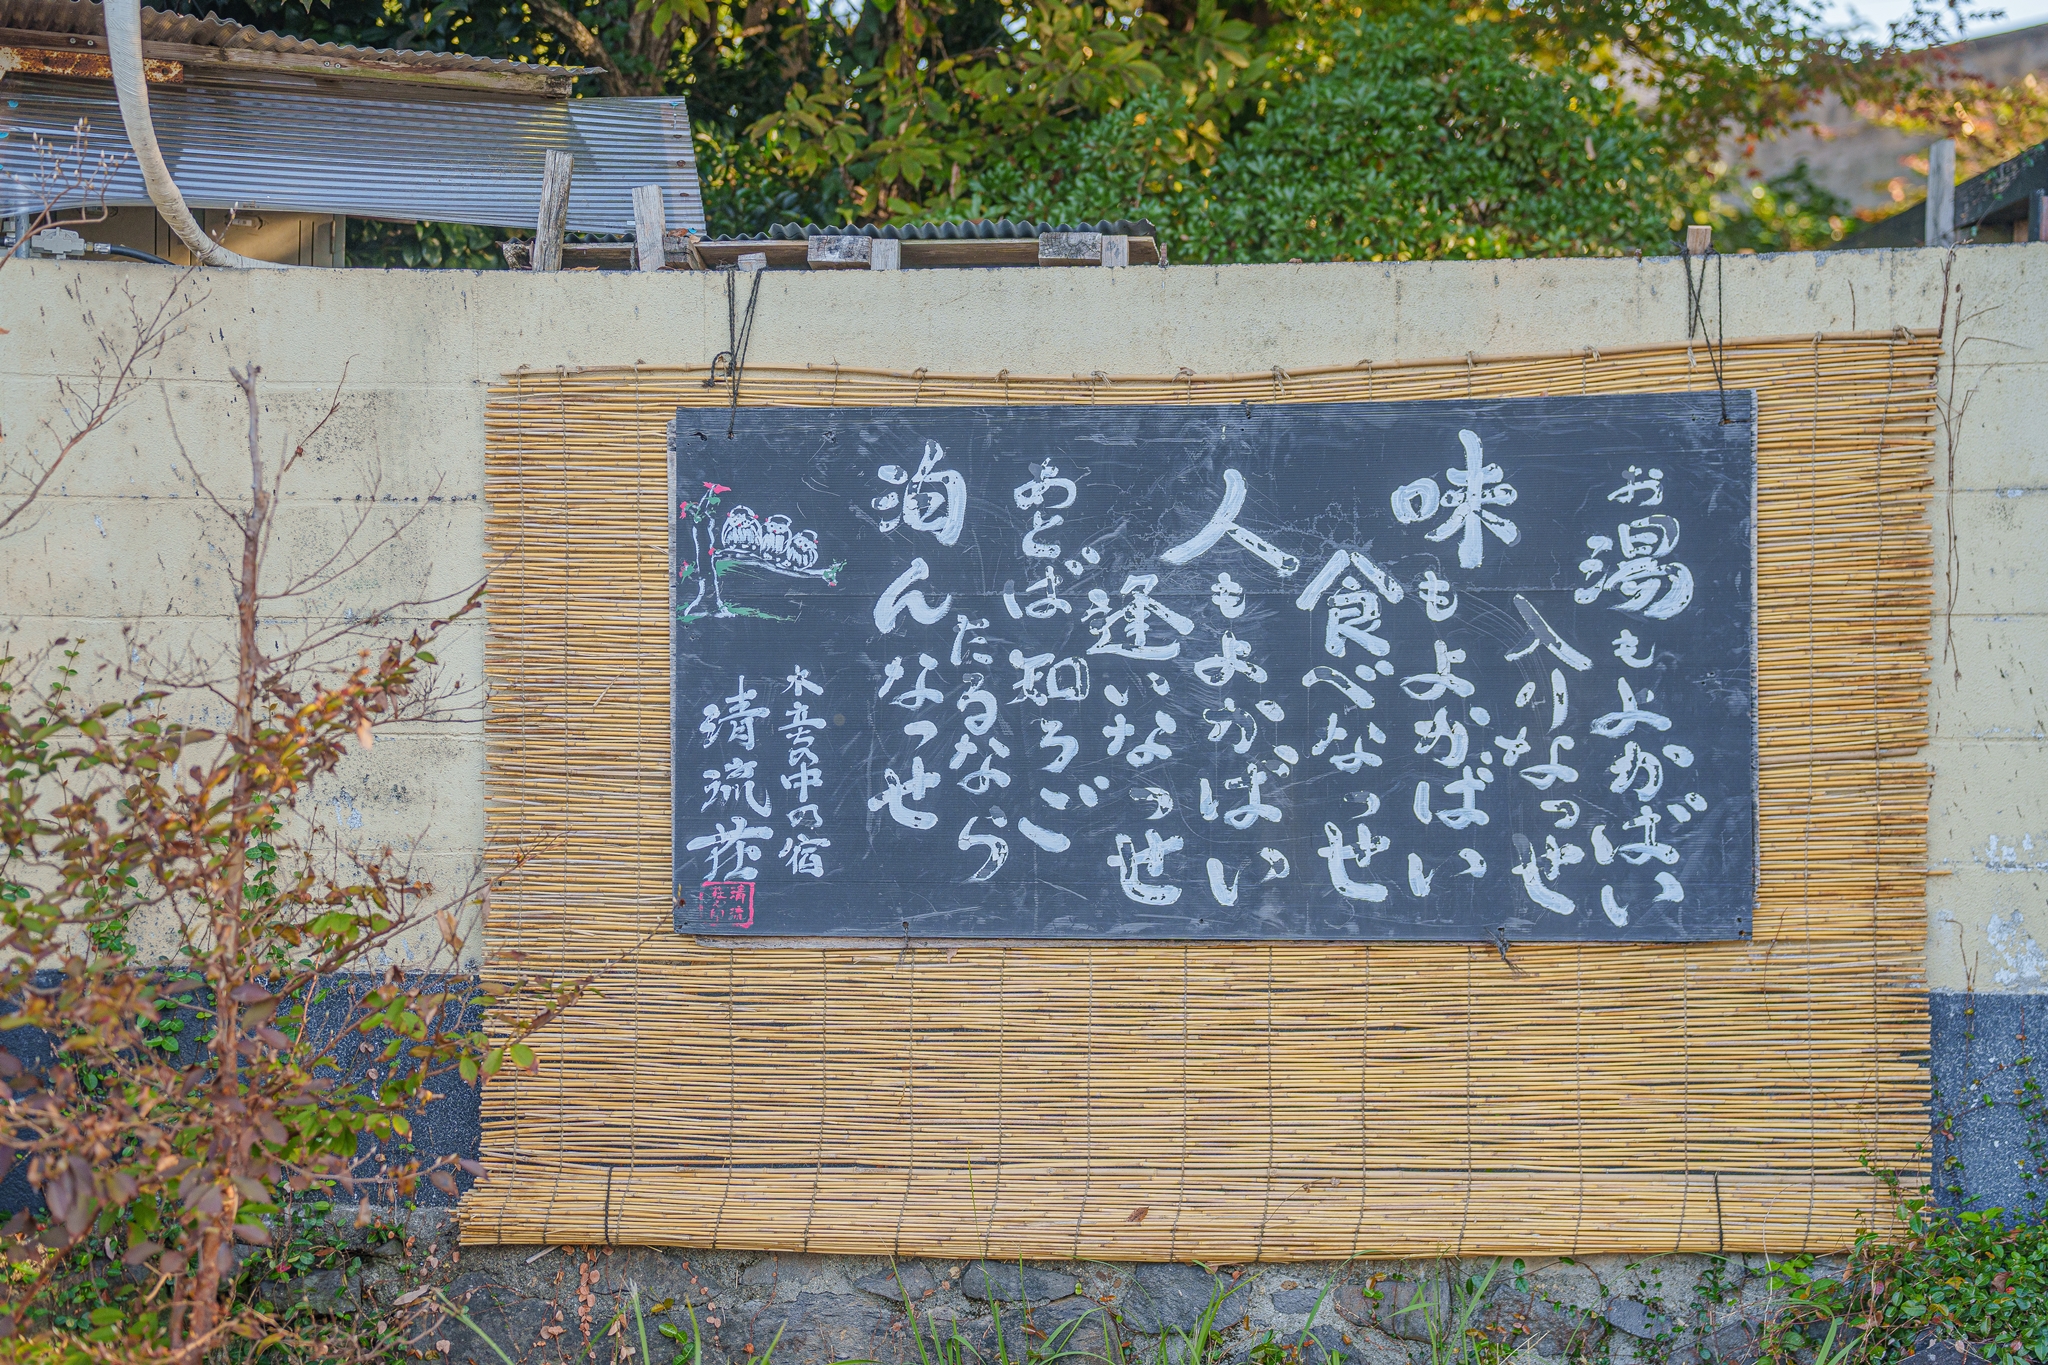 お湯もよかばい
入りなっせ
味もよかばい
食べなっせ
人もよかばい
逢いなっせ
あとば知ろご
たるなら
泊んなっせ
中の宿
清流荘
清流